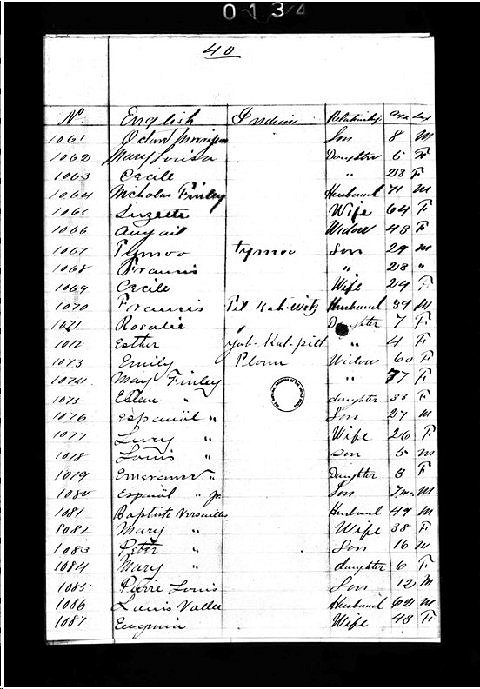 0134
40
No English Indian Relationship Age Sex
1061 Octave Son 8 M
1062 Mary Louisa Daughter 5 F
1063 Cecile " F
1064 Nicholas Finley Husband 71 M
1065 Suzette Wife 64 F
1066 Widow 48 F
1067 Plymoo Tymoo Son 29 M
1068 Francois " 28 "
1069 Cecile Wife 24 F
1070 Francois Husband 39 M
1071 Rosalie " Daughter 7 F
1072 Esther " 4 F
1073 Emily Plom Widow 60 F
1074 Mary Finley " 77 F
1075 " daughter 38 F
1076 Espaniel " Son 27 M
1077 Lucy " Wife 26 F
1078 Louis " son 5 m
1079 " Daughter 3 F
1080 Espaniel " Jr Son M
1081 Baptiste Versailles Husband 49 M
1082 Mary " Wife 38 F
1083 Peter " Son 16 M
1084 Mary " daughter 6 F
1085 Pierre Louis Son 12 M
1086 Louis Vallee Husband M
1087 Eugenia Wife 48 F